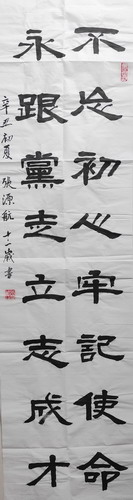 不忘初心牢記使命
永跟黨走立志成才
辛丑初夏張源航十二歲書